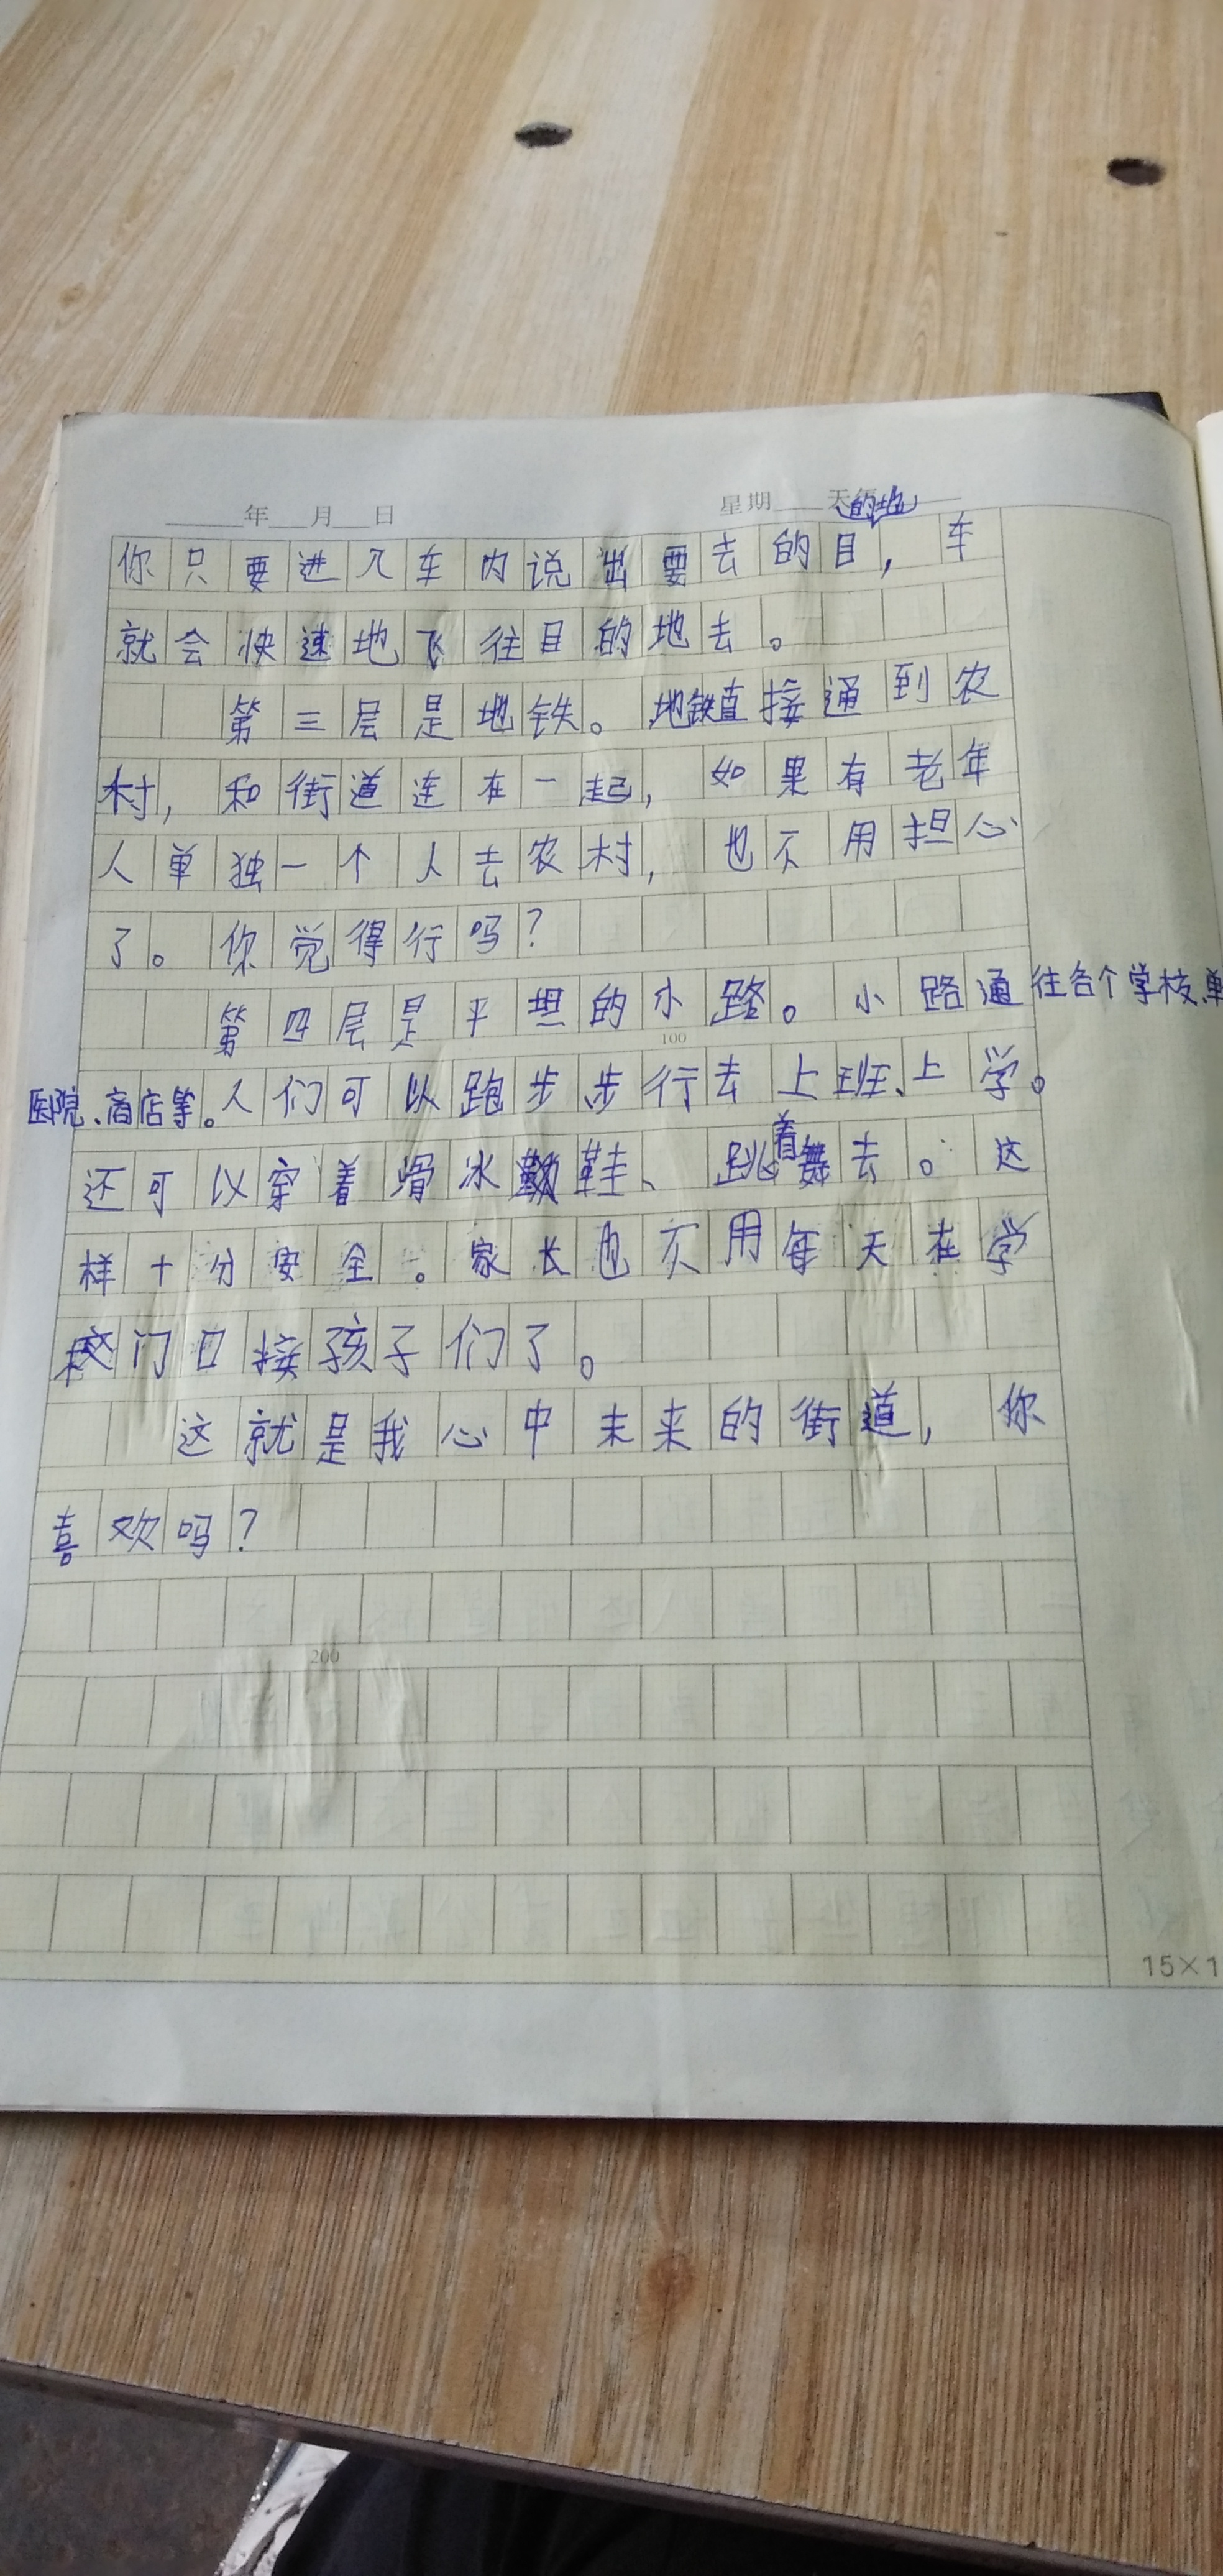 年 月 日 星期
的地
你只要进入车内说出要去的目，车
就会快速地飞往目的地去。
第三层是地铁。地铁直接通到农
村，和街道连在一起，如果有老年
人单独一个人去农村，也不用担心
了。你觉得行吗？
第四层是平坦的小路。小路通往各个学校、单
100
医院、商店等。人们可以跑步、步行去上班、上学。
着
还可以穿着滑冰鞋、跳舞去。这
样十分安全。家长也不用每天在学
校门口接孩子们了。
这就是我心中未来的街道，你
喜欢吗？
200
15×1